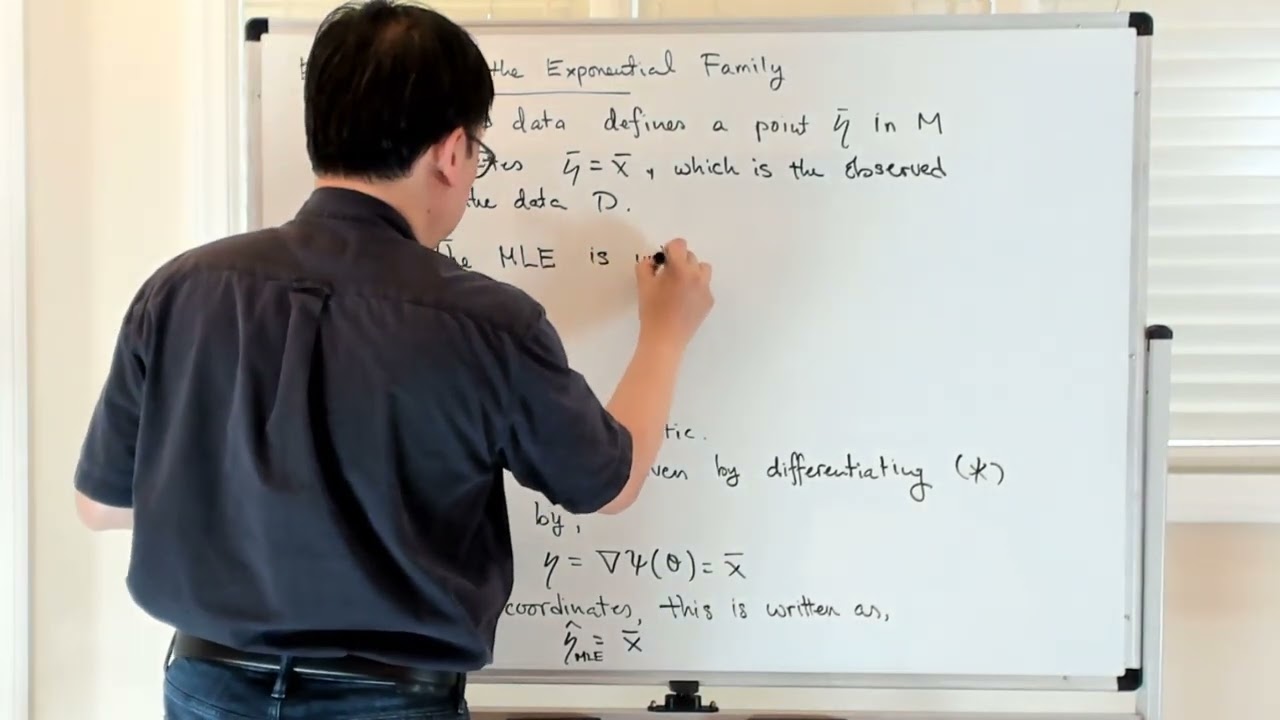 the Exponential Family
data defines a point η̄ in M
η̄ = x̄, which is the observed
the data D.
The MLE is
by differentiating (*)
by,
η = ∇ψ(θ) = x̄
coordinates, this is written as,
η̂_MLE = x̄